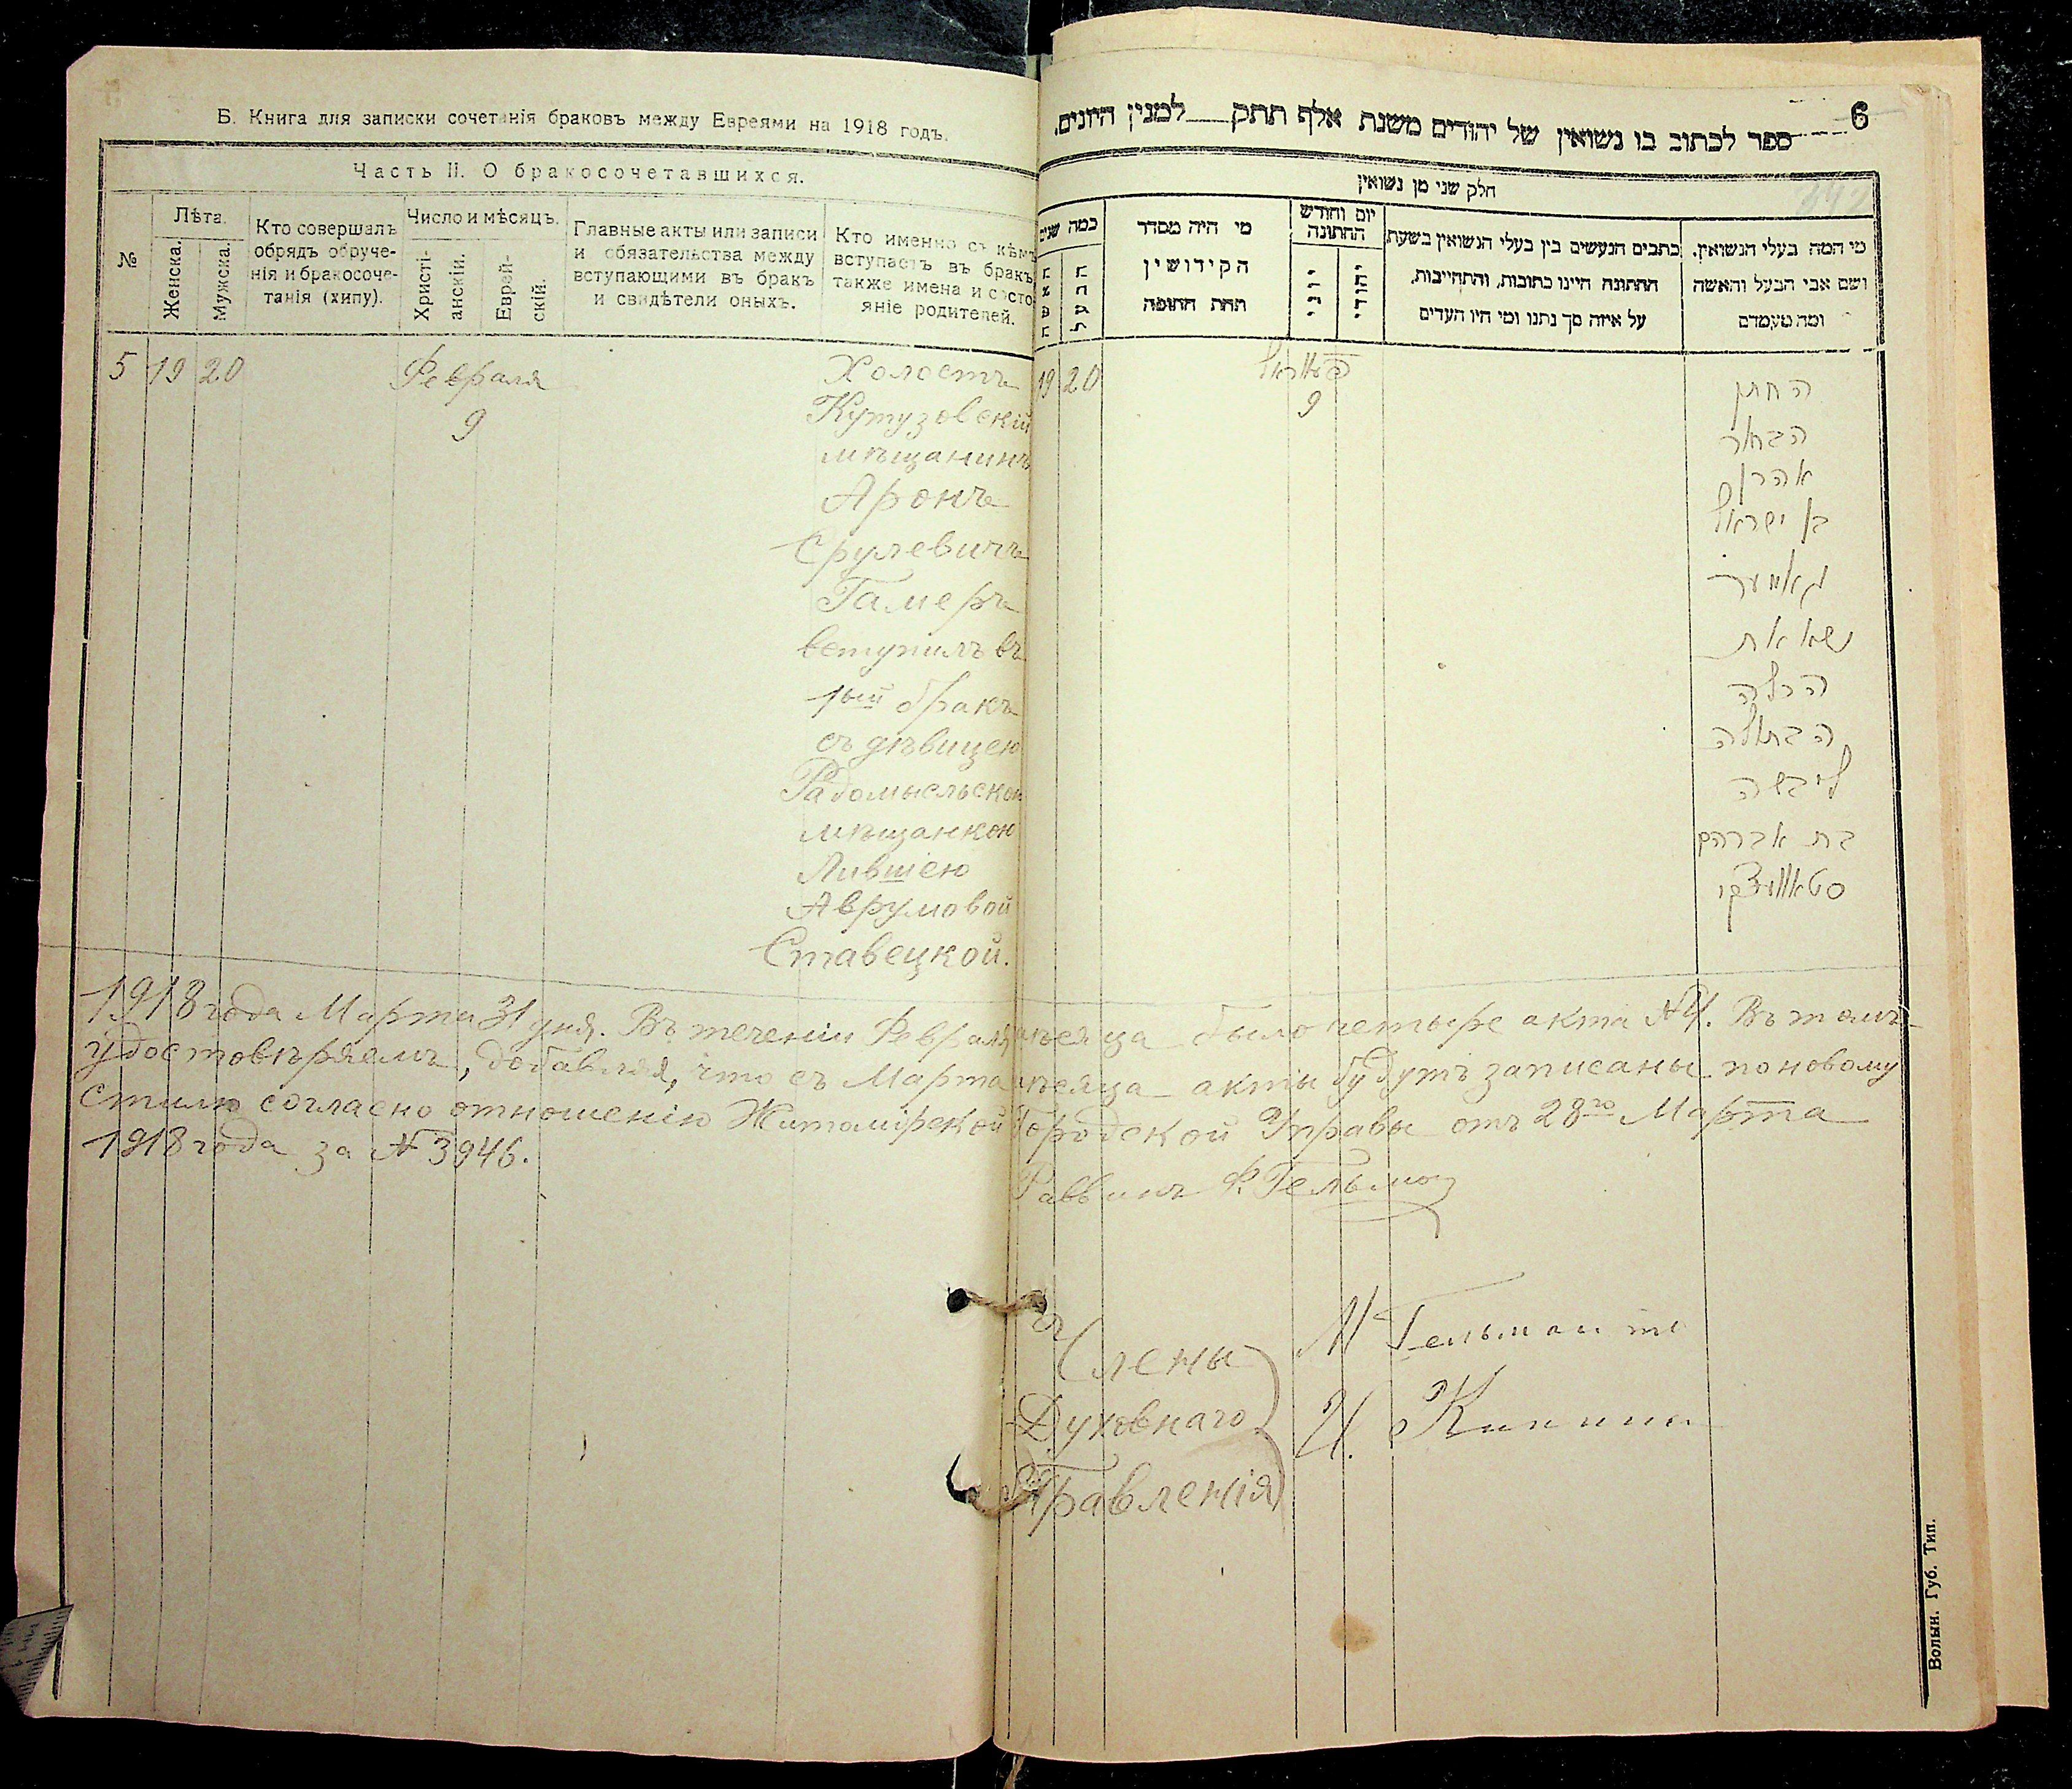 Б. Книга для записки сочетанія браковъ между Евреями на 1918 годъ.
Часть II. О бракосочетавшихся.
№
Лѣта.
Женска.
Мужска.
Кто совершалъ
обрядъ обруче-
нія и бракосоче-
танія (хипу).
Число и мѣсяцъ.
Христі-
анскій.
Еврей-
скій.
Главные акты или записи
и обязательства между
вступающими въ бракъ
и свидѣтели оныхъ.
Кто именно съ кѣмъ
вступаетъ въ бракъ
также имена и состо-
яніе родителей.
5 19 20
Февраля
9
Холостъ
Кутузовскій
мѣщанинъ
Аронъ
Срулевичъ
Гамеръ
вступилъ въ
1ый бракъ
съ дѣвицею
Радомысльской
мѣщанкою
Лившею
Аврумовой
Ставецкой.
6
ספר לכתוב בו נשואין של יהודים משנת אלף תתק למנין היונים.
חלק שני מן נשואין
כמה שנים
האשה
הבעל
מי היה מסדר
הקידושין
תחת החופה
יום וחודש
החתונה
יוני
יהודי
כתבים הנעשים בין בעלי הנשואין בשעת
החתונה היינו כתובות, והתחייבות,
על איזה סך נתנו ומי היו העדים
מי המה בעלי הנשואין,
ושם אבי הבעל והאשה
ומה מעמדם
19 20
9
החתן
הבחור
אהרן
בן ישראל
גאמער
נשא את
הכלה
הבתולה
ליבשה
בת אברהם
סטאוועצקי
1918 года Марта 31 дня. Въ теченіи Февраля мѣсяца было четыре акта №4. Въ томъ
удостовѣряемъ, добавляя, что съ Марта мѣсяца акты будутъ записаны по новому
стилю согласно отношенію Житомірской Городской Управы отъ 28го Марта
1918 года за № 3946.
Раввинъ
Члены
Духовнаго
Правленія
М Гельман
И.
Волын. Губ. Тип.